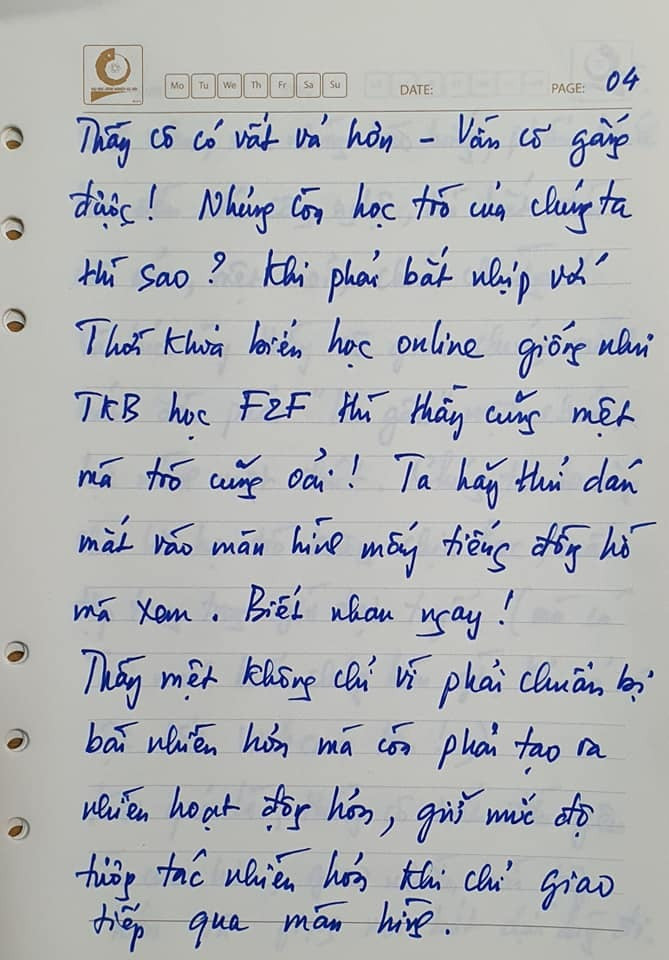 Mo Tu We Th Fr Sa Su DATE: PAGE: 04
Thầy cô có vất vả hơn – Vẫn cố gắng
được! Nhưng còn học trò của chúng ta
thì sao? Khi phải bắt nhịp với
Thời khóa biểu học online giống như
TKB học F2F thì thầy cũng mệt
mà trò cũng oải! Ta hãy thử dán
mắt vào màn hình mấy tiếng đồng hồ
mà xem. Biết nhau ngay!
Thầy mệt không chỉ vì phải chuẩn bị
bài nhiều hơn mà còn phải tạo ra
nhiều hoạt động hơn, giữ mức độ
tương tác nhiều hơn khi chỉ giao
tiếp qua màn hình.